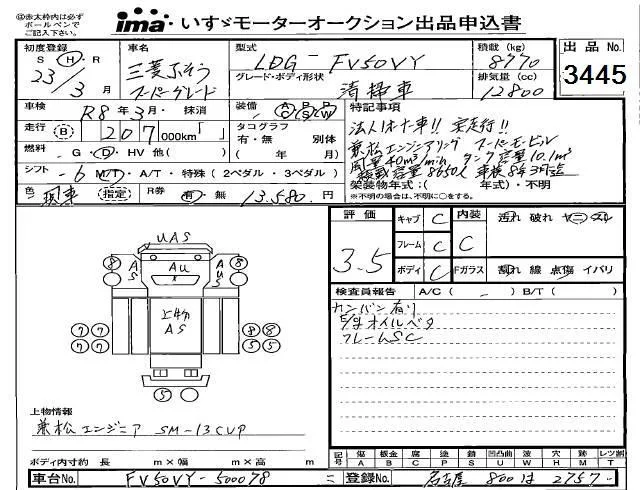 ※赤太枠内は必ず
ボールペンで
ご記入下さい。
ima いすゞモーターオークション出品申込書
初度登録 車名 型式 積載 (kg) 出品 No.
S Ⓗ R 23/3月 三菱ふそう スーパーグレート LDG-FV50VY 8770
グレード・ボディ形状 清掃車 排気量 (cc) 12800
3445
車検 R8年3月・抹消 装備 特記事項
走行 Ⓑ 207 000km「 」 タコグラフ 有・無 別体
法人1オーナー車!! 実走行!!
燃料 ・G・Ⓓ・HV 他( ) ( 年 月)
兼松エンジニアリング スーパーモービル
風量40m³/min タンク容量10.1m³
シフト -6 M/T・A/T・特殊(2ペダル・3ペダル)
積載容量8650L 車検8年3月迄
架装物年式:( 年式)・不明
※不明の場合は、不明に○をする。
色 指定 R券 有・無 13,580円
評価 3.5
キャブ C 内装 C 汚れ 破れ ヤニ スレ
フレーム C
ボディ C Fガラス 割れ 線 点傷 イバリ
検査員報告 A/C( - ) B/T( )
カンバン有り
E/gオイルベタ
フレームSC
UAS
⑧ AS AU AUS ⑧
上物 AS
⑦⑦ ⑧⑧
⑦⑦ ⑤⑤
⑤
上物情報
兼松エンジニア SM-13CVP
ボディ内寸約 長 m×幅 m×高 m
記号 傷 A 板金 B 腐 C 塗 P 錆 S 凹凸曲 U 波 W 穴 H 跡 M レツ割 T
車台No. FV50VY-500078 登録No. 名古屋 800 は 2757